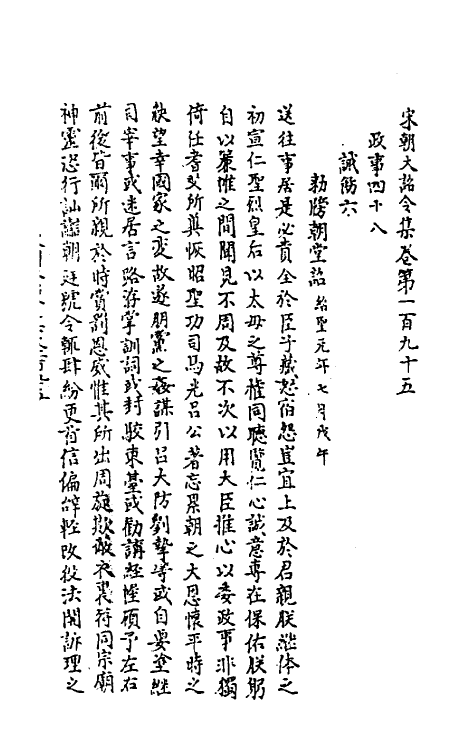 宋朝大詔令集卷第一百九十五
政事四十八
誡飭六
勅牓朝堂詔紹聖元年七月戊午
送往事居是必責全於臣子藏怒宿怨豈宜上及於君親朕継体之
初宣仁聖烈皇后以太母之尊権同聽覽仁心誠意專在保佑朕躬
自以簾帷之間聞見不周及故不次以用大臣推心以委政事非獨
倚任耆艾所兾恢昭聖功司馬光呂公著忘累朝之大恩懷平時之
觖望幸國家之变故逐朋黨之姦謀引呂大防劉摯等或自要塗継
司宰事或迭居言路游掌訓詞或封駮東臺或勸講経幄碩予左右
前後皆爾所親於時賞罰恩威惟其所出周旋欺蔽表裏符同宗廟
神靈恣行訕讟朝廷號令輒肆紛更首信偏辞輕改役法開訴理之